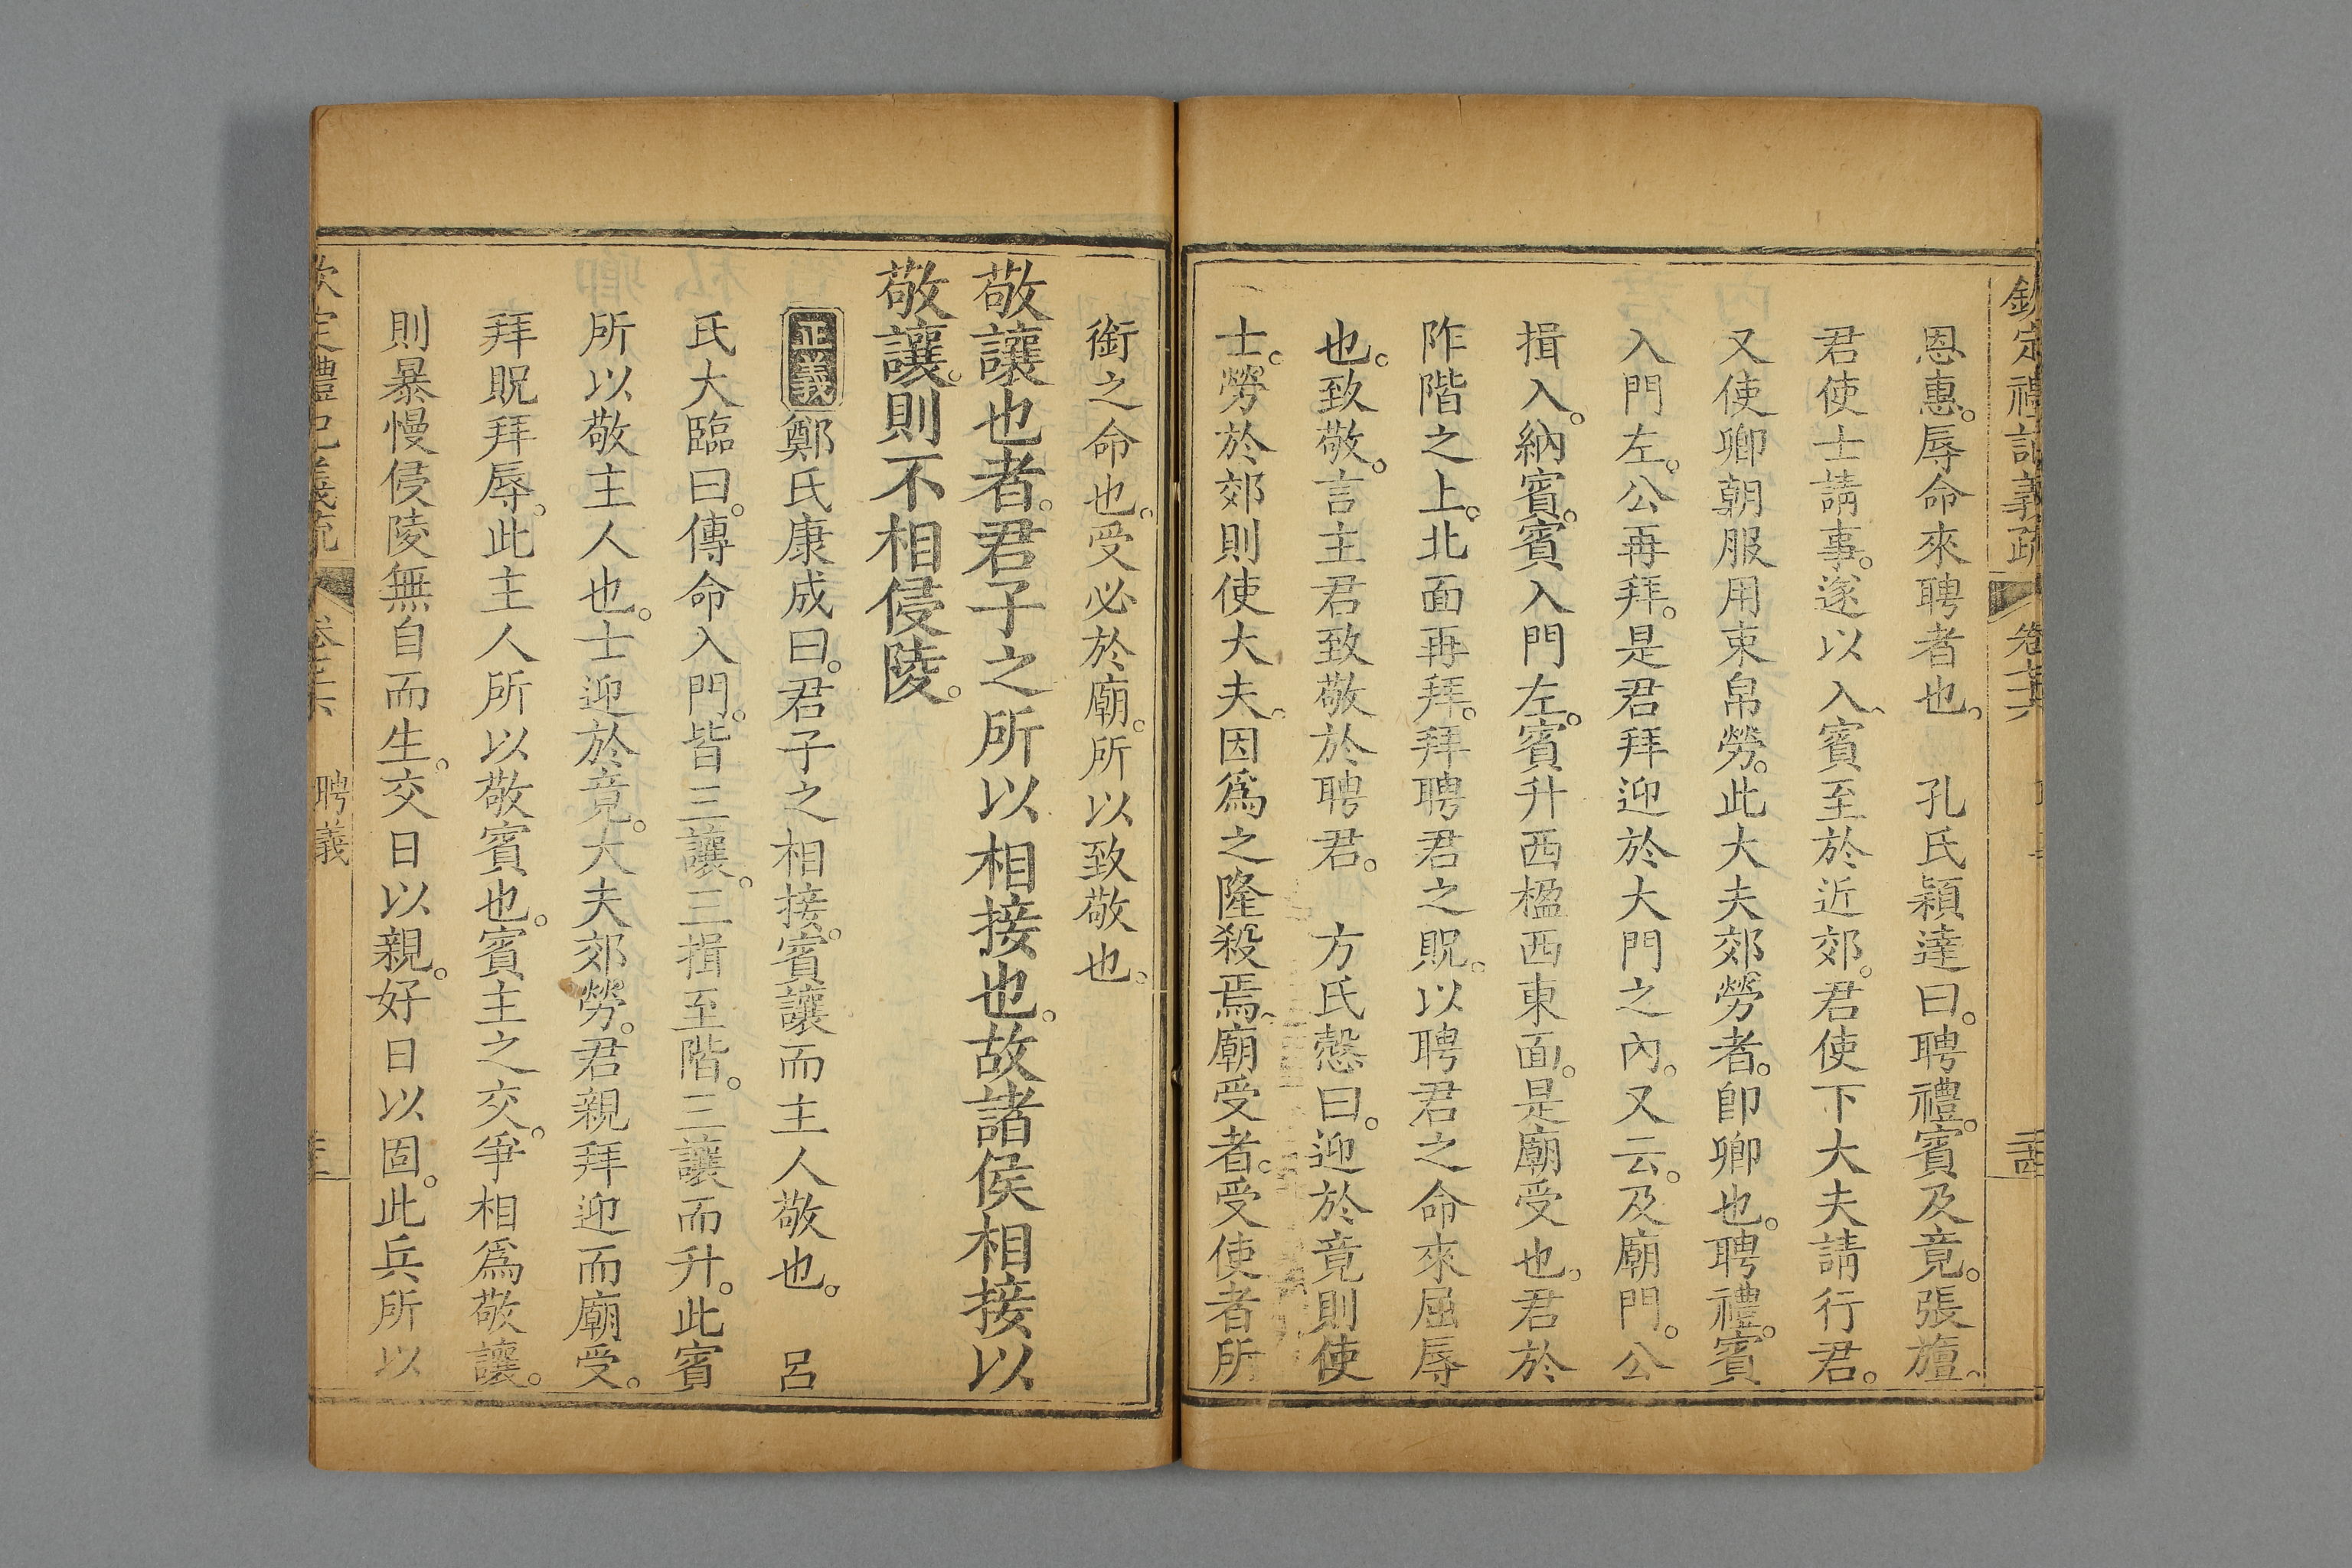 欽定禮記義疏 卷七十六
恩惠。辱命來聘者也。 孔氏穎達曰。聘禮。賓及竟。張旜。
君使士請事。遂以入。賓至於近郊。君使下大夫請行君。
又使卿朝服用束帛勞。此大夫郊勞者。卽卿也。聘禮。賓
入門左。公再拜。是君拜迎於大門之內。又云。及廟門。公
揖入。納賓。賓入門左。賓升西楹西東面。是廟受也。君於
阼階之上。北面再拜。拜聘君之貺。以聘君之命來屈辱
也。致敬。言主君致敬於聘君。 方氏慤曰。迎於竟則使
士。勞於郊則使大夫。因爲之隆殺焉。廟受者。受使者所
銜之命也。受必於廟。所以致敬也。
敬讓也者。君子之所以相接也。故諸侯相接以
敬讓。則不相侵陵。
正義 鄭氏康成曰。君子之相接。賓讓而主人敬也。 呂
氏大臨曰。傳命入門。皆三讓。三揖至階。三讓而升。此賓
所以敬主人也。士迎於竟。大夫郊勞。君親拜迎而廟受。
拜貺拜辱。此主人所以敬賓也。賓主之交。爭相爲敬讓。
則暴慢侵陵無自而生。交日以親。好日以固。此兵所以
聘義